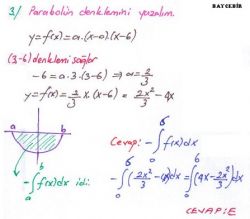 BAYCEBİR
3/ Parabolün denklemini yazalım.
y=f(x)=a.(x-0).(x-6)
(3,-6) denklemi sağlar
-6=a.3.(3-6) ⇒ a=2/3
y=f(x)=2/3 x.(x-6) = 2x²/3 - 4x
a b
-∫ₐᵇ f(x)dx idi.
Cevap: -∫₀⁶ f(x)dx
-∫₀⁶ (2x²/3 - 4x)dx = ∫₀⁶ (4x - 2x²/3)dx
CEVAP: E